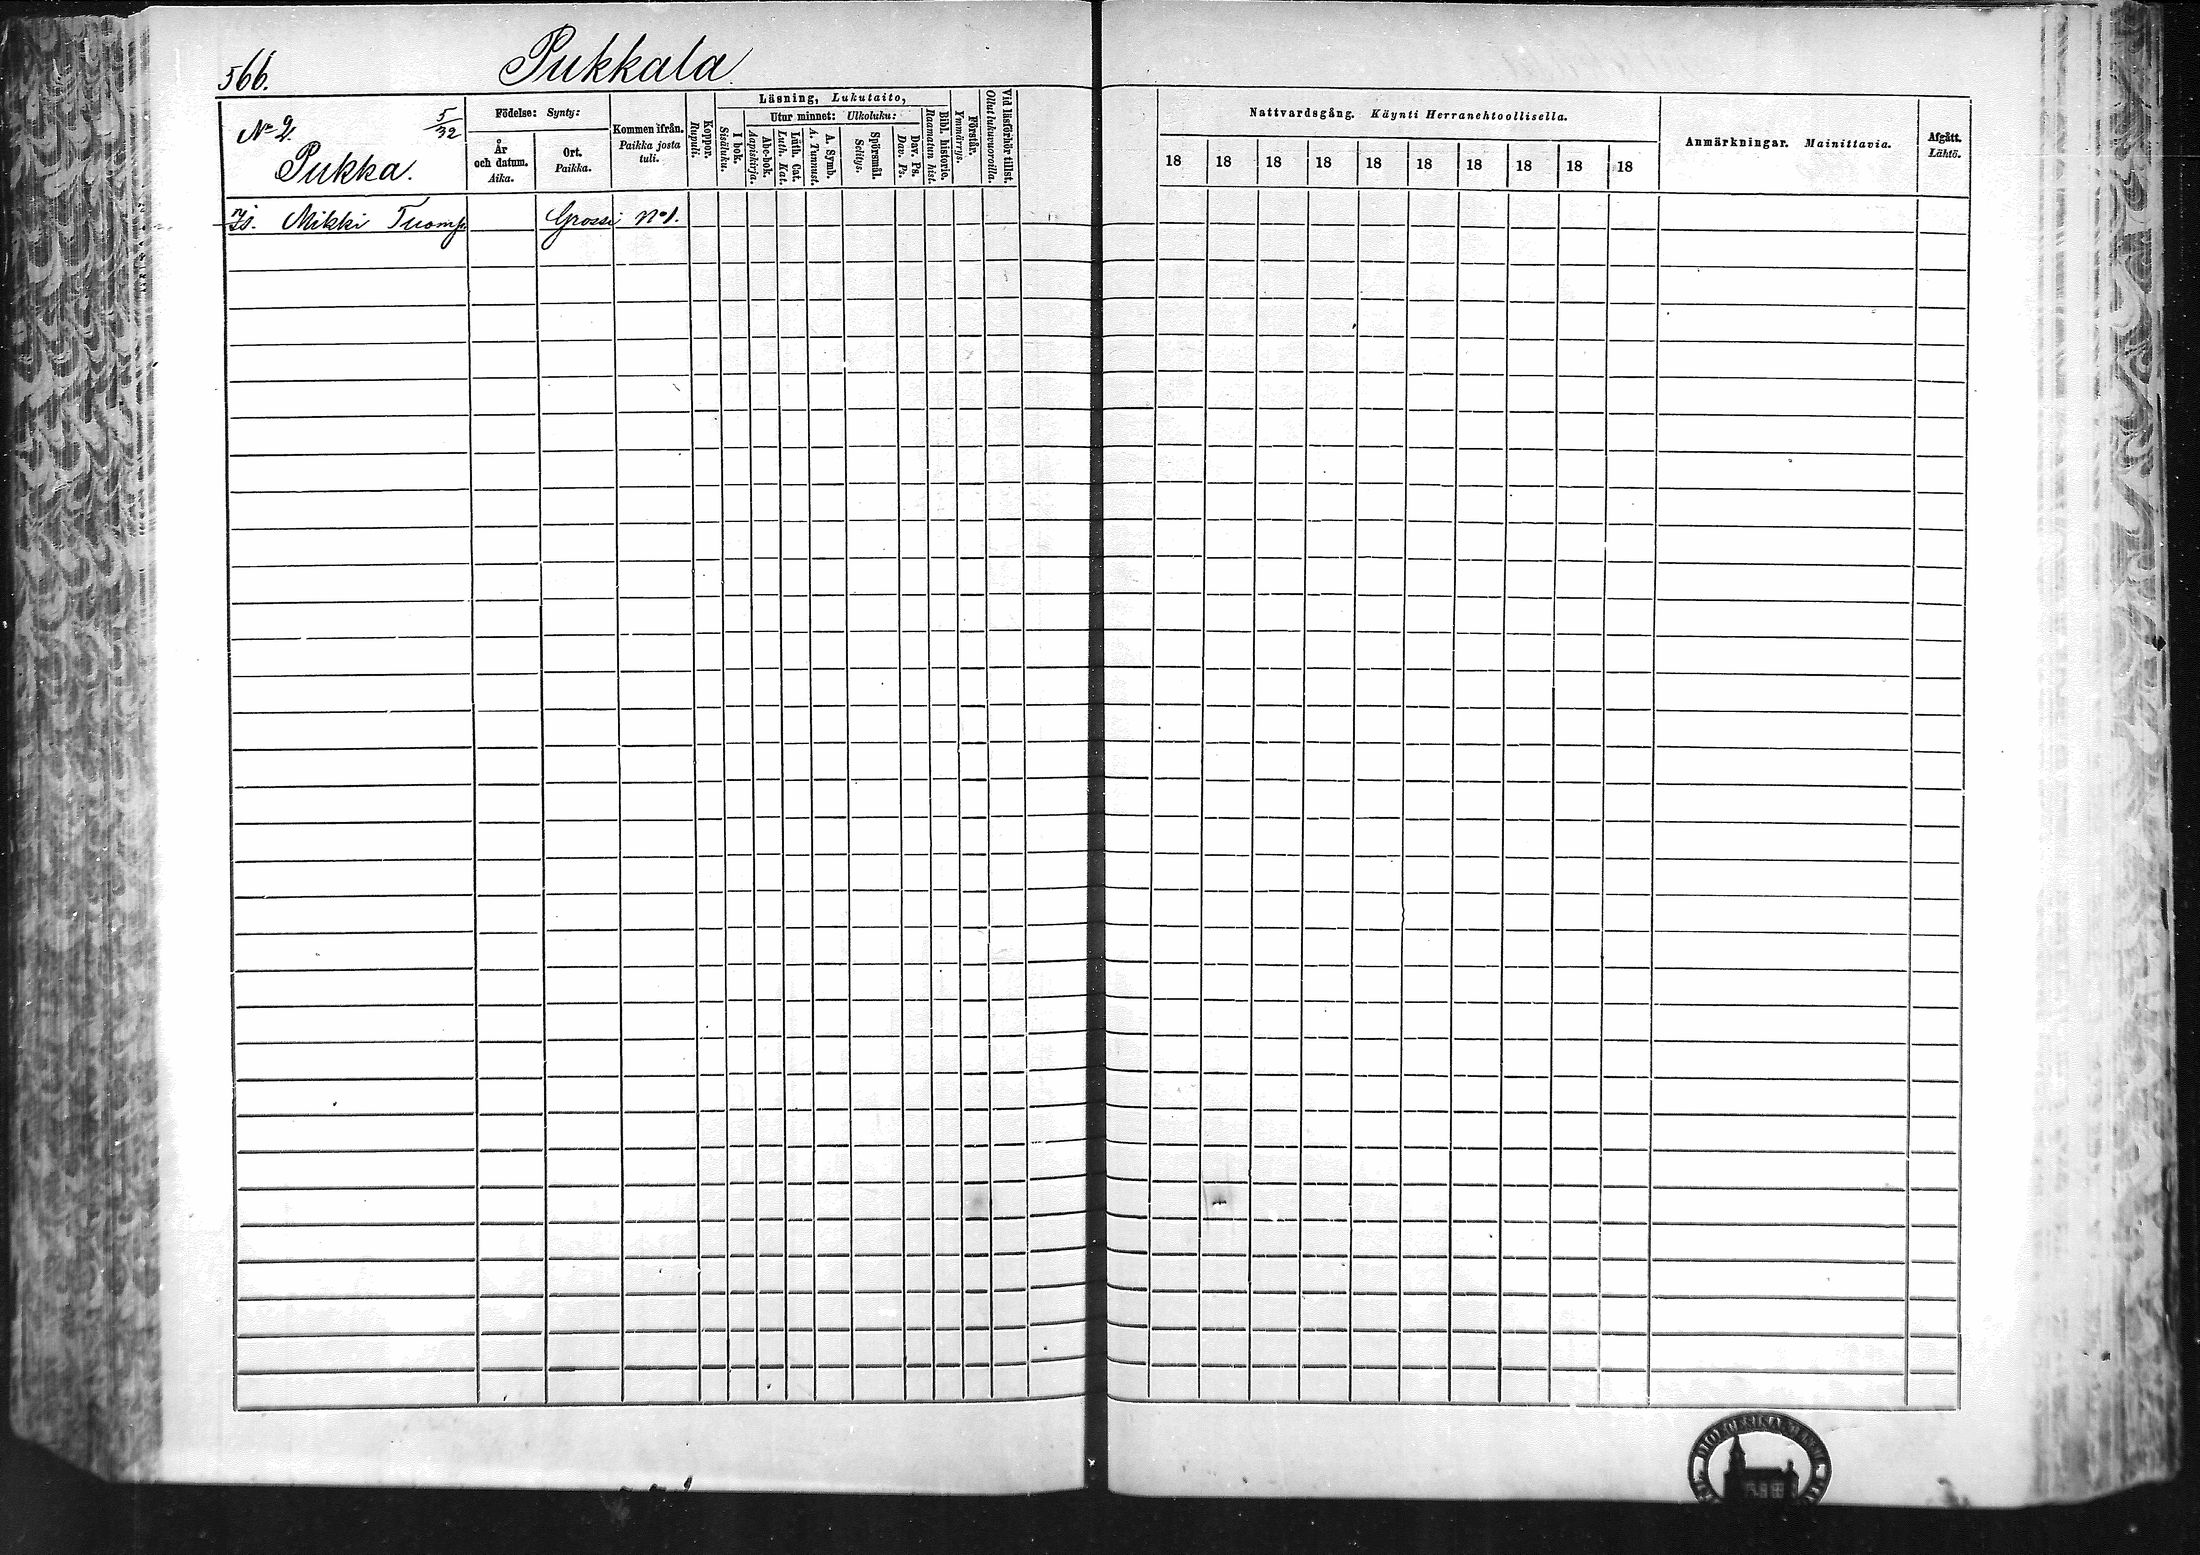 566.
Pukkala
No 2.
5/32
Pukka.
Födelse: Synty:
År och datum. Aika.
Ort. Paikka.
Kommen ifrån. Paikka josta tuli.
Koppor. Rupuli.
Läsning, Lukutaito,
I bok. Sisäluku.
Utur minnet: Ulkoluku:
Abc-bok. Aapiskirja.
Luth. Cat. Luth. Kat.
A. Symb. A. Tunnust.
Spörsmål. Selitys.
Dav. Ps. Dav. Ps.
Bibl. historie. Raamatun hist.
Förstår. Ymmärrys.
Vid läsförhör tillst. Ollut lukuvuoroilla.
Nattvardsgång. Käynti Herranehtoollisella.
18 18 18 18 18 18 18 18 18 18
Anmärkningar. Mainittavia.
Afgått. Lähtö.
Is. Mikki Tuomp. Grossi No 1.